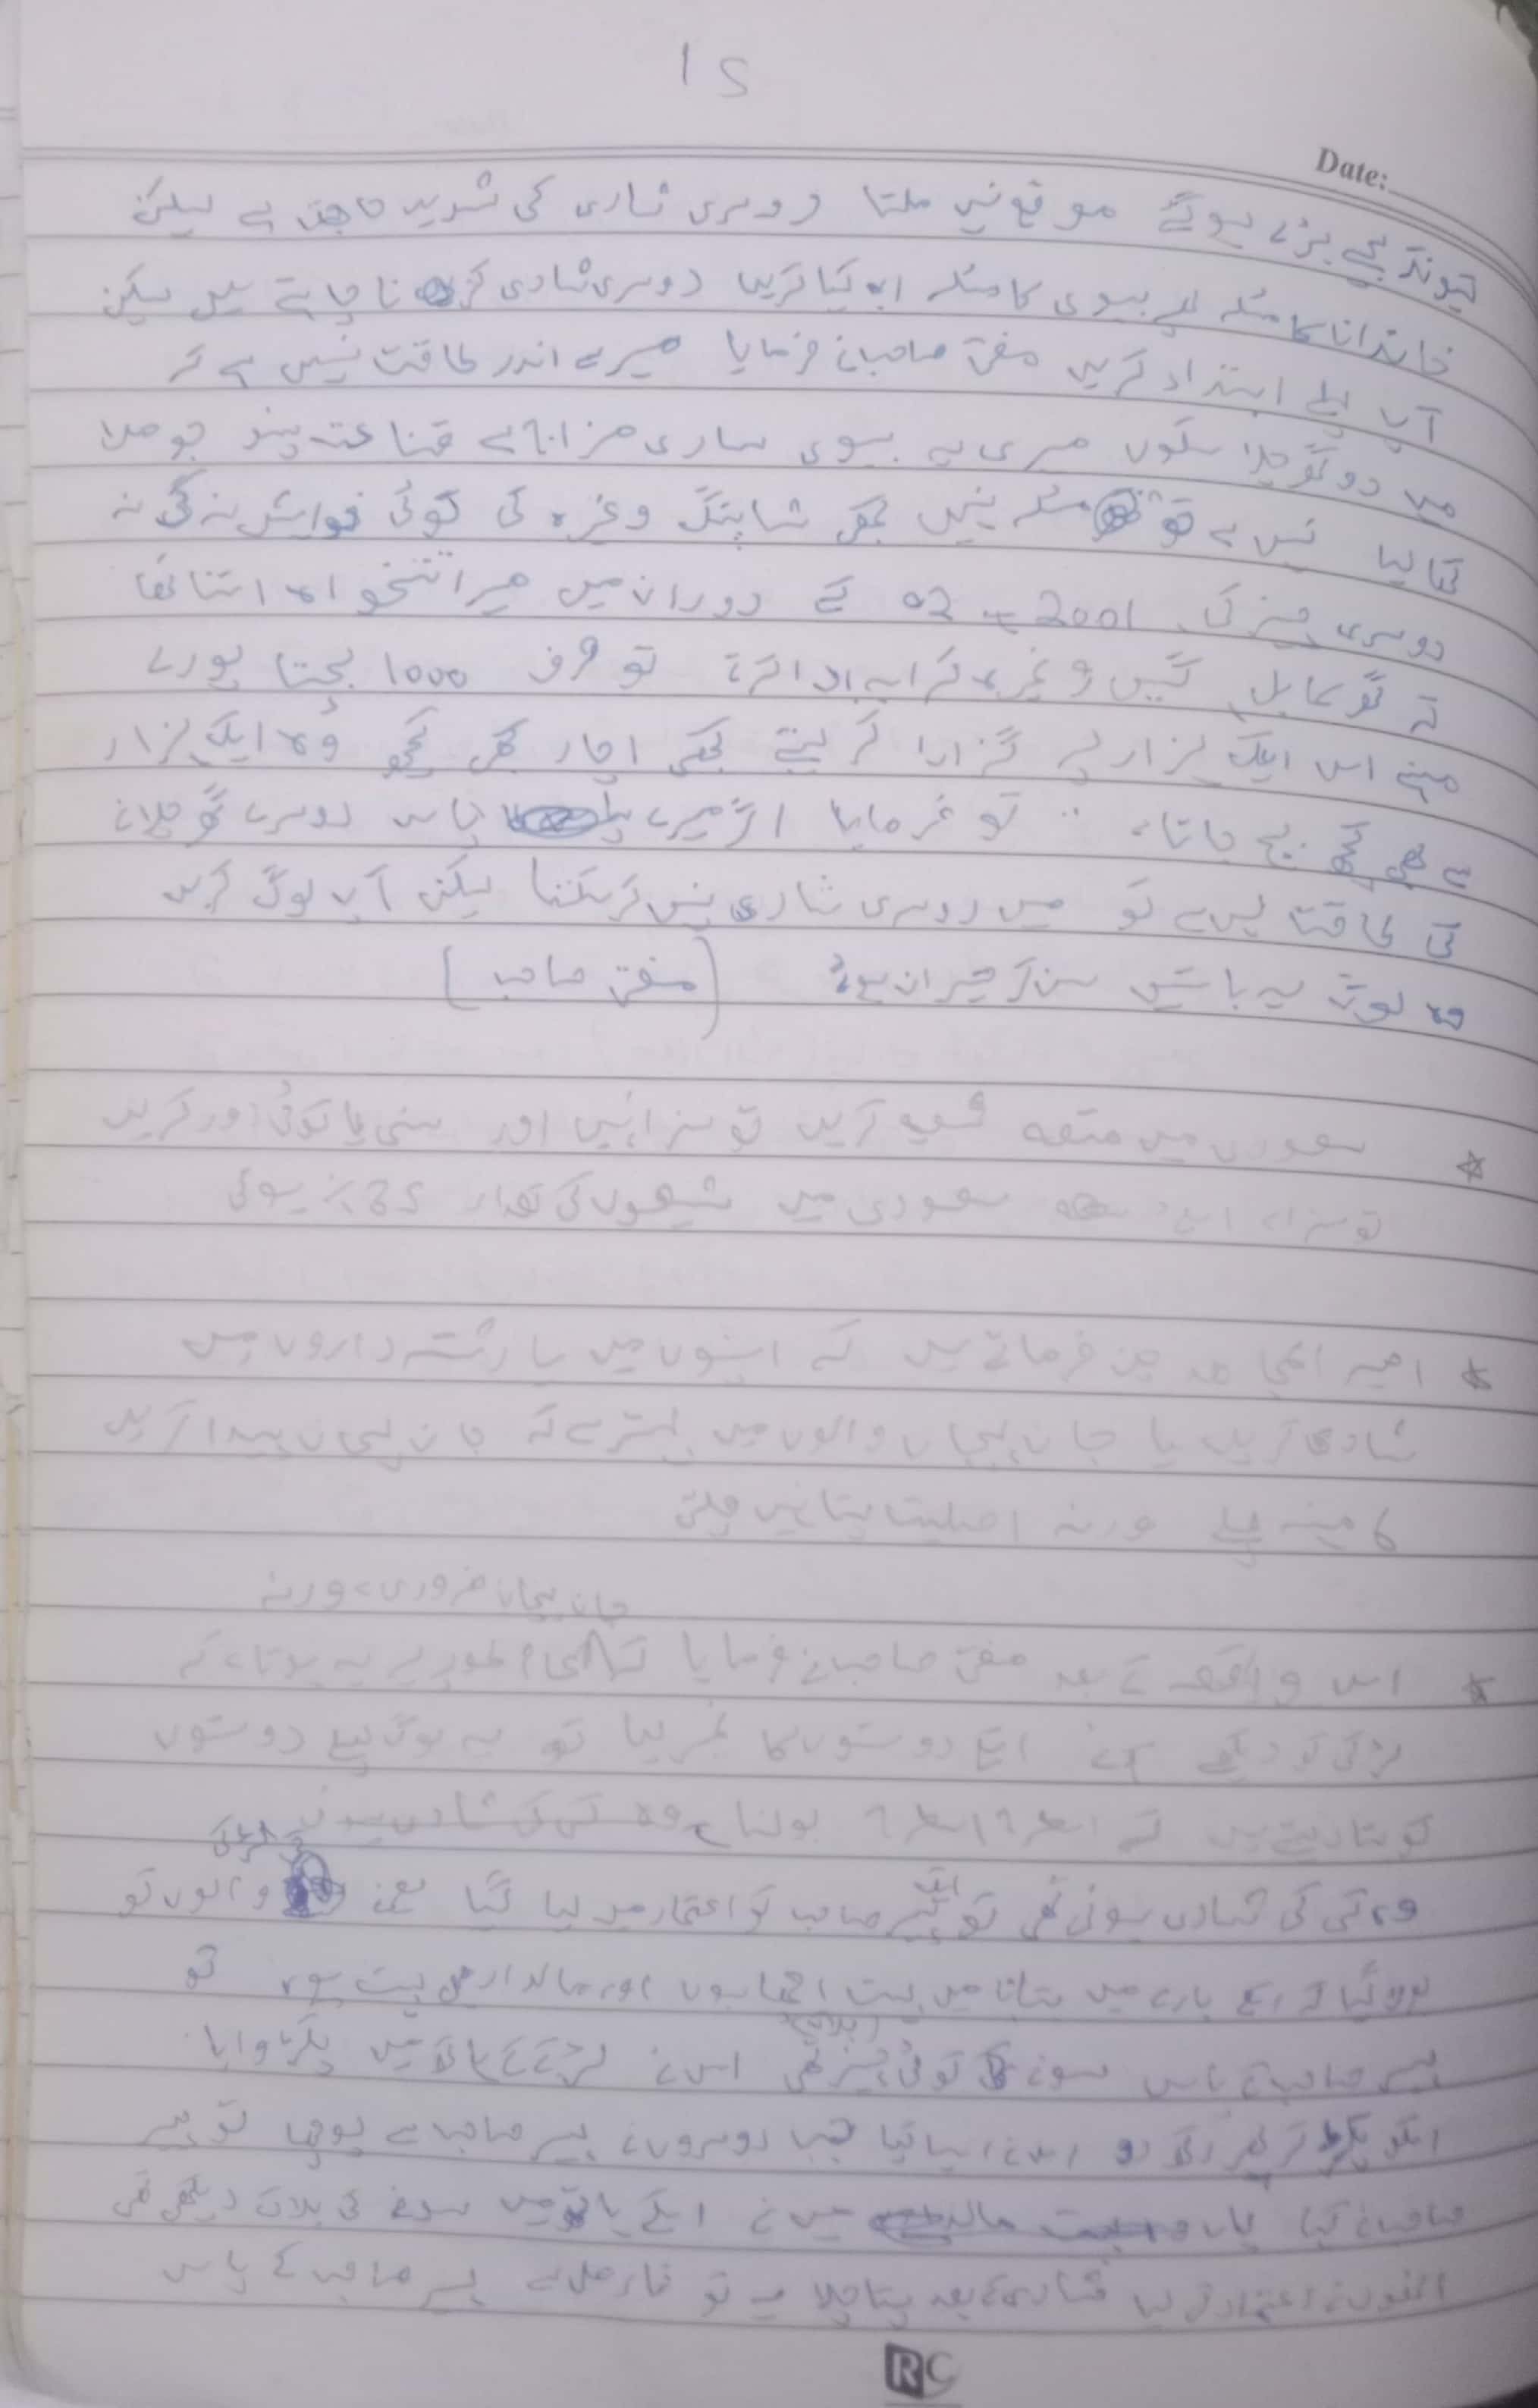 Date:
کیونکہ بچے بڑے ہوگئے موقع نہیں ملتا دوسری شادی کی شدید حاجت ہے لیکن
خاندان کا مسئلہ بیوی کا مسئلہ اب کیا کریں دوسری شادی کرنا چاہتے ہیں لیکن
آپ پہلے ابتداء کریں مفتی صاحب نے فرمایا میرے اندر طاقت نہیں ہے کہ
میں دو گھر چلا سکوں میری یہ بیوی ساری مزاج ہے قناعت پسند جو ملا
کھا لیا نہیں ہے تو مسئلہ نہیں کبھی شاپنگ وغیرہ کی کوئی خواہش نہ کی نہ
دوسری چیز کی 2001 سے 02 کے دوران میں میرا تنخواہ اتنا تھا
کہ گھر کا بل گیس وغیرہ کرایہ ادا کرتے تو صرف 1000 بچتا پورے
مہینے اس ایک ہزار پر گزارا کر لیتے کبھی اچار کبھی کچھ وہ ایک ہزار
سے بھی کچھ بچ جاتا۔ تو فرمایا اگر میرے پاس دوسرے گھر چلانے
کی طاقت نہیں ہے تو میں دوسری شادی نہیں کرسکتا لیکن آپ لوگ کریں
وہ لوگ یہ باتیں سن کر حیران ہوئے (مفتی صاحب)
☆ سعودی میں متعہ شیعہ کریں تو سزا نہیں اور سنی یا کوئی اور کریں
تو سزا ہے سعودی میں شیعوں کی تعداد ہوئی
☆ فرماتے ہیں کہ اپنوں میں یا رشتہ داروں میں
شادی کریں یا جان پہچان والوں میں بہتر ہے کہ جان پہچان پیدا کریں
6 مہینے پہلے ورنہ اصلیت پتا نہیں چلتی
جان پہچان ضروری ہے ورنہ
☆ اس واقعہ کے بعد مفتی صاحب نے فرمایا کہ عام طور پر یہ ہوتا ہے کہ
لڑکی کو دیکھنے آئے اپنے دوستوں کا نمبر لیا تو یہ لوگ پہلے دوستوں
کو بتا دیتے ہیں کہ بولنا ہے وہ کسی کی شادی ہوئی
وہ کسی کی شادی ہونی تھی تو ایک پیر صاحب کو اعتماد میں لیا گیا والوں کو
میرے بارے میں بتانا میں بہت اچھا ہوں اور مالدار بھی بہت ہوں تو
پیر صاحب کے پاس سونے کی کوئی چیز تھی اس نے لڑکے کے ہاتھ میں پکڑوایا
اسکو پکڑ کر پھر رکھ دو اس نے ایسا کیا جب دوسروں نے پیر صاحب سے پوچھا تو پیر
صاحب نے کہا ہاں میں نے اسکے ہاتھ میں سونے کی دیکھی تھی
انہوں نے اعتماد کر لیا شادی کے بعد پتا چلا یہ تو پیر صاحب کے پاس
RC